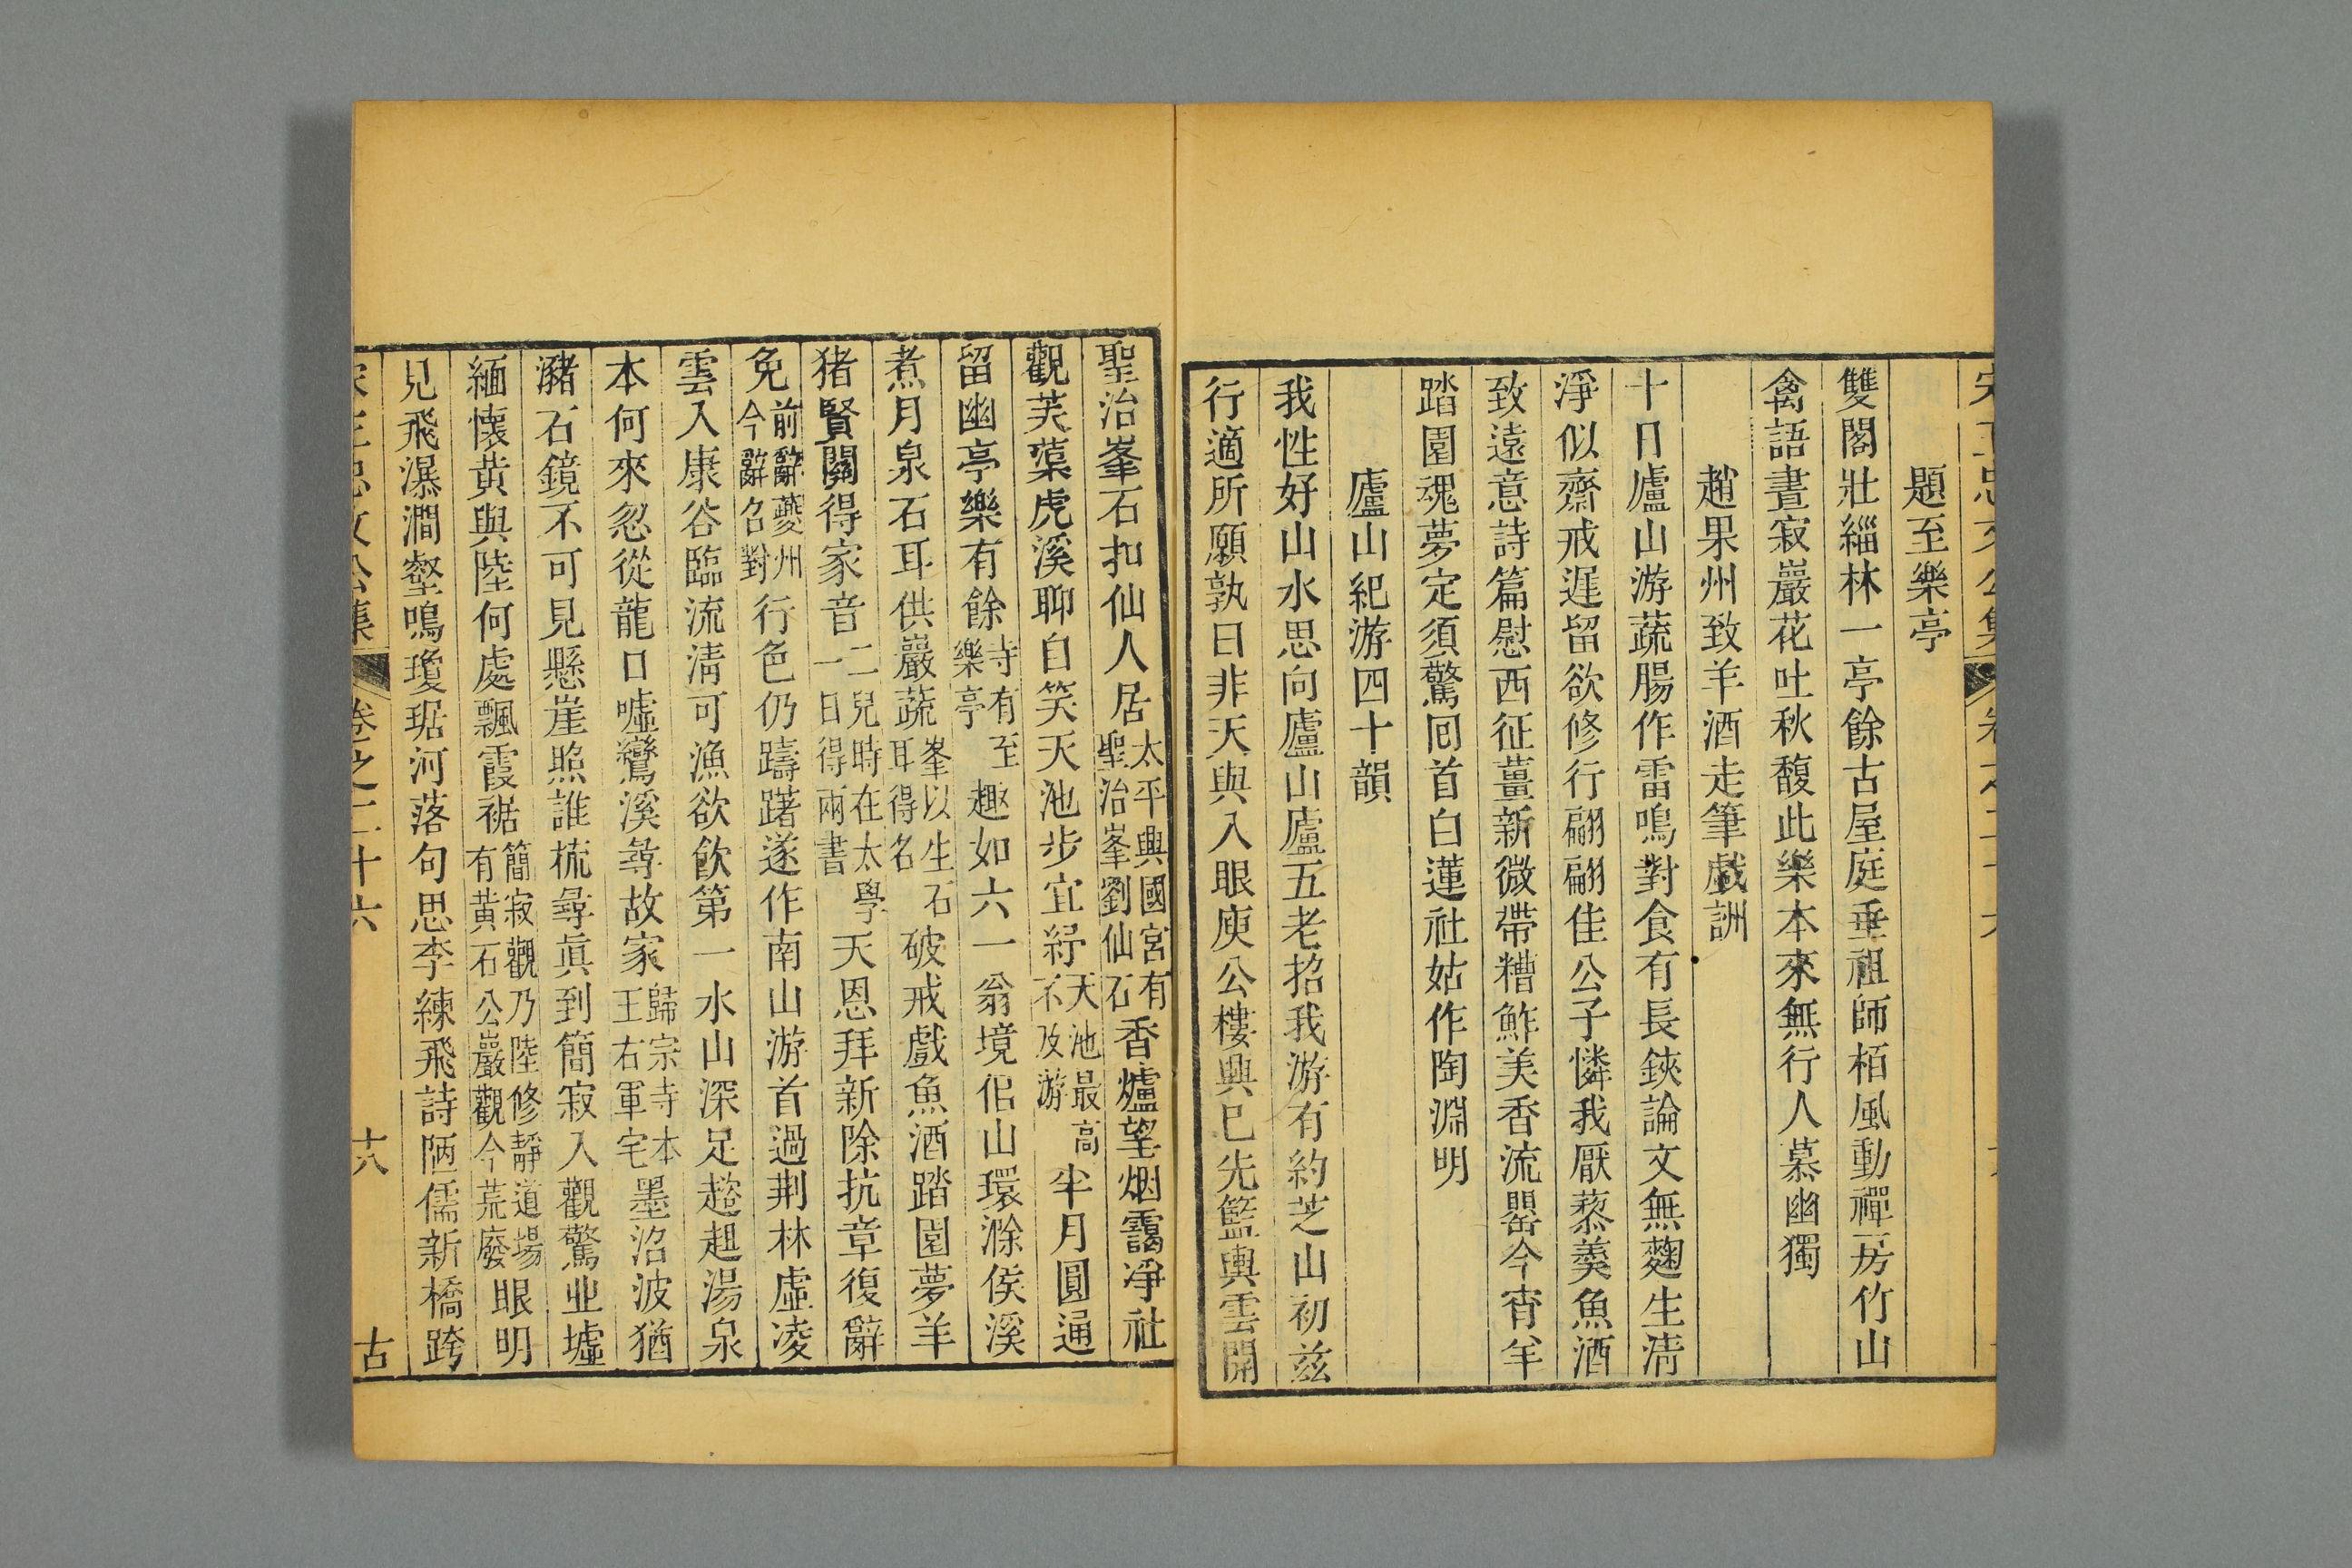 題至樂亭
雙閣壯緇林一亭餘古屋庭垂祖師栢風動禪房竹山
禽語晝寂巖花吐秋馥此樂本來無行人慕幽獨
趙果州致羊酒走筆戲詶
十日廬山游蔬腸作雷鳴對食有長鋏論文無麴生淸
淨似齋戒遲留欲修行翩翩佳公子憐我厭藜羹魚酒
致遠意詩篇慰西征薑新微帶糟鮓美香流罌今宵羊
踏園魂夢定須驚囘首白蓮社姑作陶淵明
廬山紀游四十韻
我性好山水思向廬山廬五老招我游有約芝山初兹
行適所願孰曰非天與入眼庾公樓興已先籃輿雲開
聖治峯石扣仙人居太平興國宮有聖治峯劉仙石香爐望烟靄淨社
觀芙蕖虎溪聊自笑天池步宜紓天池最高不及游半月圓通
留幽亭樂有餘寺有至樂亭趣如六一翁境佀山環滁侯溪
煮月泉石耳供巖蔬峯以生石耳得名破戒戲魚酒踏園夢羊
猪賢關得家音二兒時在太學一日得兩書天恩拜新除抗章復辭
免前辭夔州今辭召對行色仍躊躇遂作南山游首過荆林虛凌
雲入康谷臨流淸可漁欲飮第一水山深足趑趄湯泉
本何來忽從龍口噓鸞溪尋故家歸宗寺本王右軍宅墨沼波猶
瀦石鏡不可見懸崖照誰梳尋眞到簡寂入觀驚业墟
緬懷黃與陸何處飄霞裾簡寂觀乃陸修靜道場有黃石公巖觀今荒廢眼明
見飛瀑澗壑鳴瓊琚河落句思李練飛詩陋儒新橋跨
卷之二十六
古